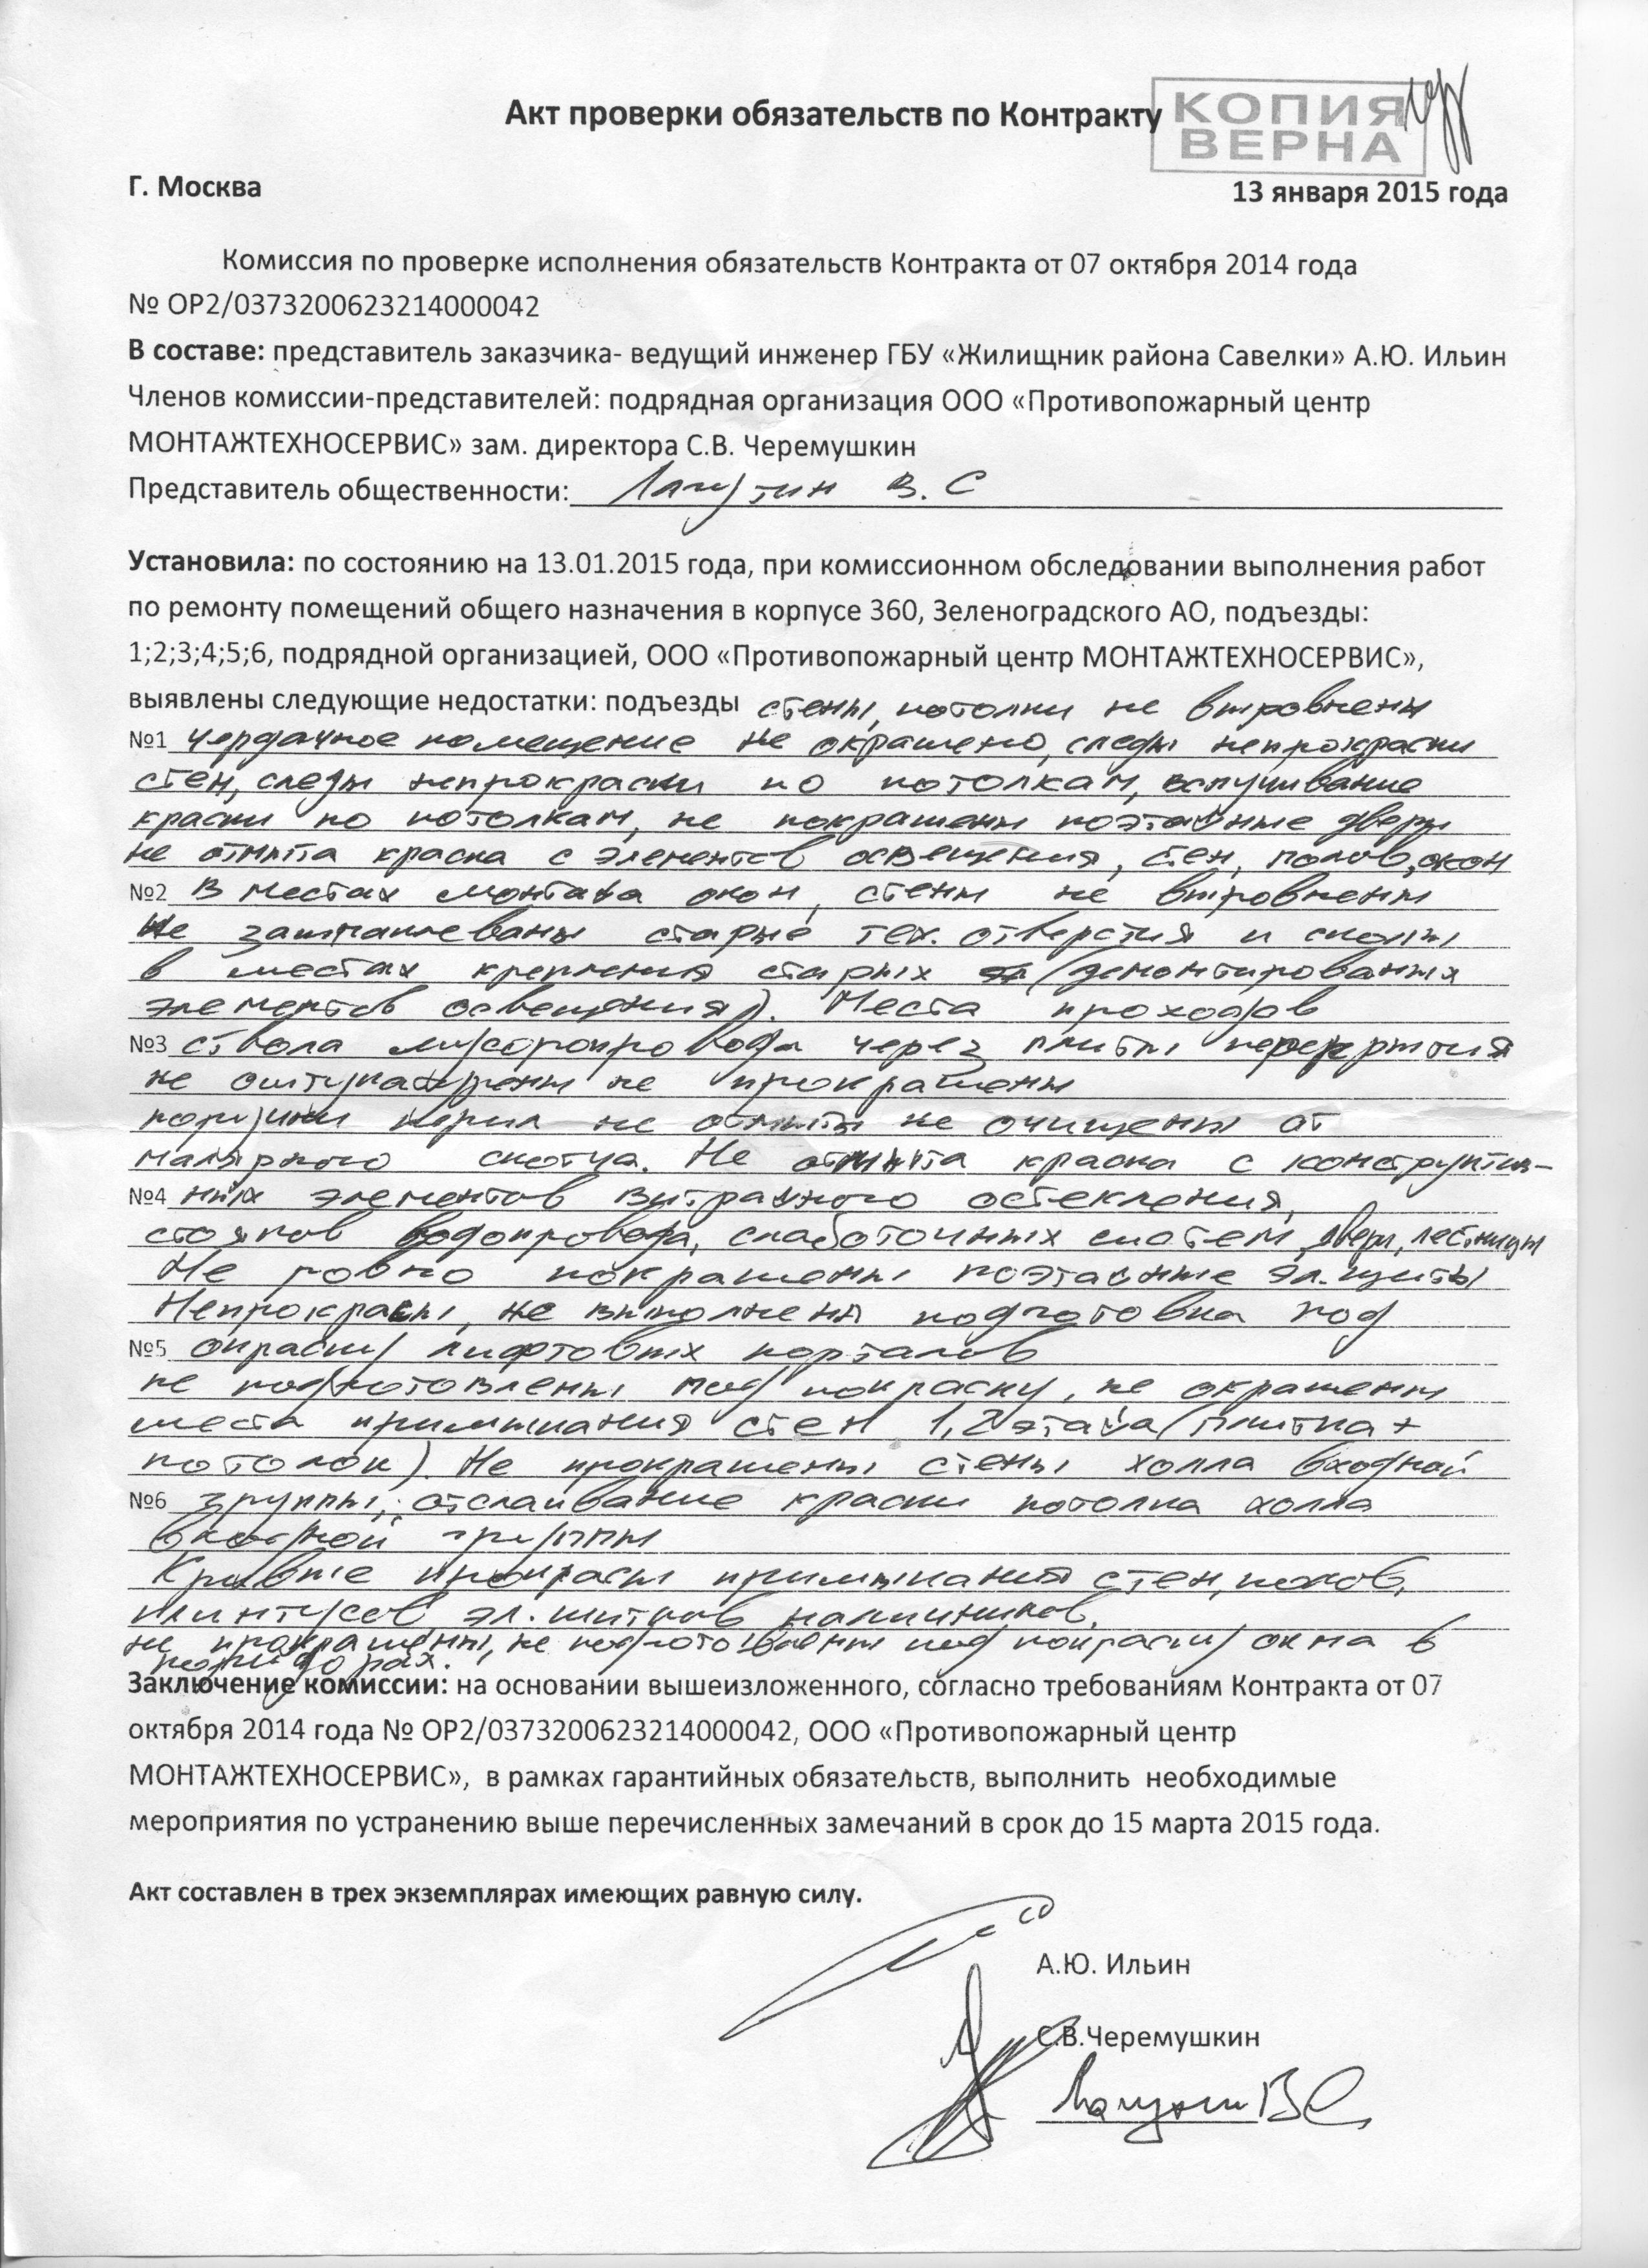 Акт проверки обязательств по Контракту
КОПИЯ
ВЕРНА
Г. Москва
13 января 2015 года
Комиссия по проверке исполнения обязательств Контракта от 07 октября 2014 года
№ ОР2/0373200623214000042
В составе: представитель заказчика- ведущий инженер ГБУ «Жилищник района Савелки» А.Ю. Ильин
Членов комиссии-представителей: подрядная организация ООО «Противопожарный центр
МОНТАЖТЕХНОСЕРВИС» зам. директора С.В. Черемушкин
Представитель общественности: В. С
Установила: по состоянию на 13.01.2015 года, при комиссионном обследовании выполнения работ
по ремонту помещений общего назначения в корпусе 360, Зеленоградского АО, подъезды:
1;2;3;4;5;6, подрядной организацией, ООО «Противопожарный центр МОНТАЖТЕХНОСЕРВИС»,
выявлены следующие недостатки: подъезды стены, потолки не выровнены
№1 чердачное помещение не окрашено, следы непрокраски
стен, следы непрокраски по потолкам, вспучивание
краски по потолкам, не покрашены поэтажные двери
не отмыта краска с элементов освещения, стен, полов, окон
№2 В местах монтажа окон, стены не выровнены
Не зашпаклеваны старые тех. отверстия и сколы
в местах крепления старых (демонтированных
элементов освещения). Места проходов
№3 ствола мусоропровода через плиты перекрытия
не оштукатурены не прокрашены
не отмыты не очищены от
малярного скотча. Не отмыта краска с конструктив-
№4 ных элементов витражного остекления,
стояков водопровода, слаботочных систем, двери, лестницы
Не ровно покрашены поэтажные эл. щиты
Непрокрасы, не выполнена подготовка под
№5 окраску лифтовых порталов
не подготовлены под покраску, не окрашены
места примыкания стен 1,2 этажа (плитка +
потолок). Не прокрашены стены холла входной
№6 группы, отслаивание краски потолка холла
входной группы
Кривые прокрасы примыкания стен, полов,
плинтусов эл. щитков наличников.
не прокрашены, не подготовлены под покраску окна в
коридорах.
Заключение комиссии: на основании вышеизложенного, согласно требованиям Контракта от 07
октября 2014 года № ОР2/0373200623214000042, ООО «Противопожарный центр
МОНТАЖТЕХНОСЕРВИС», в рамках гарантийных обязательств, выполнить необходимые
мероприятия по устранению выше перечисленных замечаний в срок до 15 марта 2015 года.
Акт составлен в трех экземплярах имеющих равную силу.
А.Ю. Ильин
С.В.Черемушкин